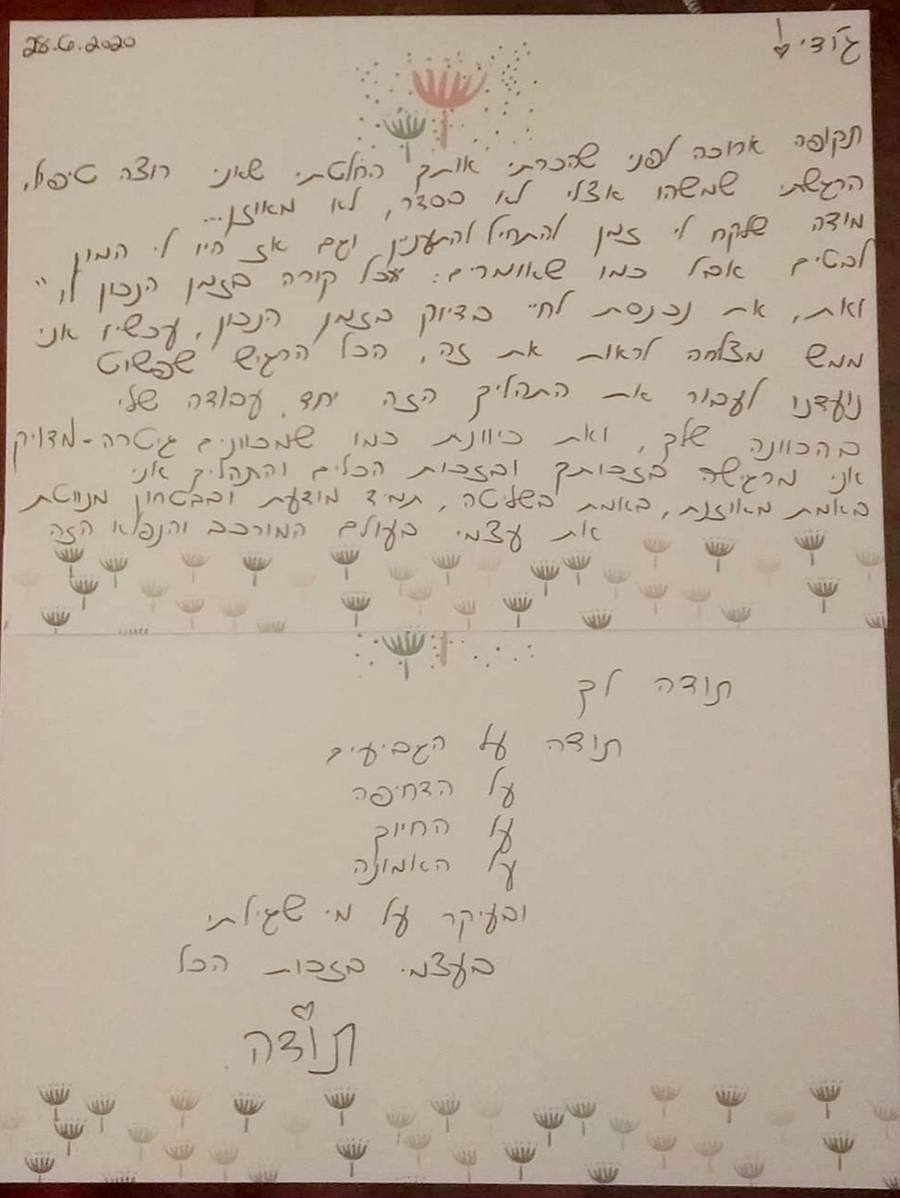 28.6.2020
ג'ודי!
תקופה ארוכה לפני שהכרתי אותך החלטתי שאני רוצה טיפול,
הרגשתי שמשהו אצלי לא בסדר, לא מאוזן...
מודה שלקח לי זמן להתחיל להתעניין וגם אז היו לי המון
לבטים אבל כמו שאומרים: "הכל קורה בזמן הנכון לו"
ואת, את נכנסת לחיי בדיוק בזמן הנכון, עכשיו אני
ממש מצלחה לראות את זה, הכל הרגיש שפשוט
נועדנו לעבור את התהליך הזה יחד, עבודה שלי
בהכוונה שלך, ואת כיוונת כמו שמכוונים גיטרה - מדויק
אני מרגישה בזכותך ובזכות הכלים והתהליך אני
באמת מאוזנת, באמת בשליטה, תמיד מודעת ובבטחון מנווטת
את עצמי בעולם המורכב והנפלא הזה
תודה לך
תודה על הגביעים
על הדחיפה
על החיוך
על האמונה
ובעיקר על מי שגיליתי
בעצמי בזכות הכל
תודה